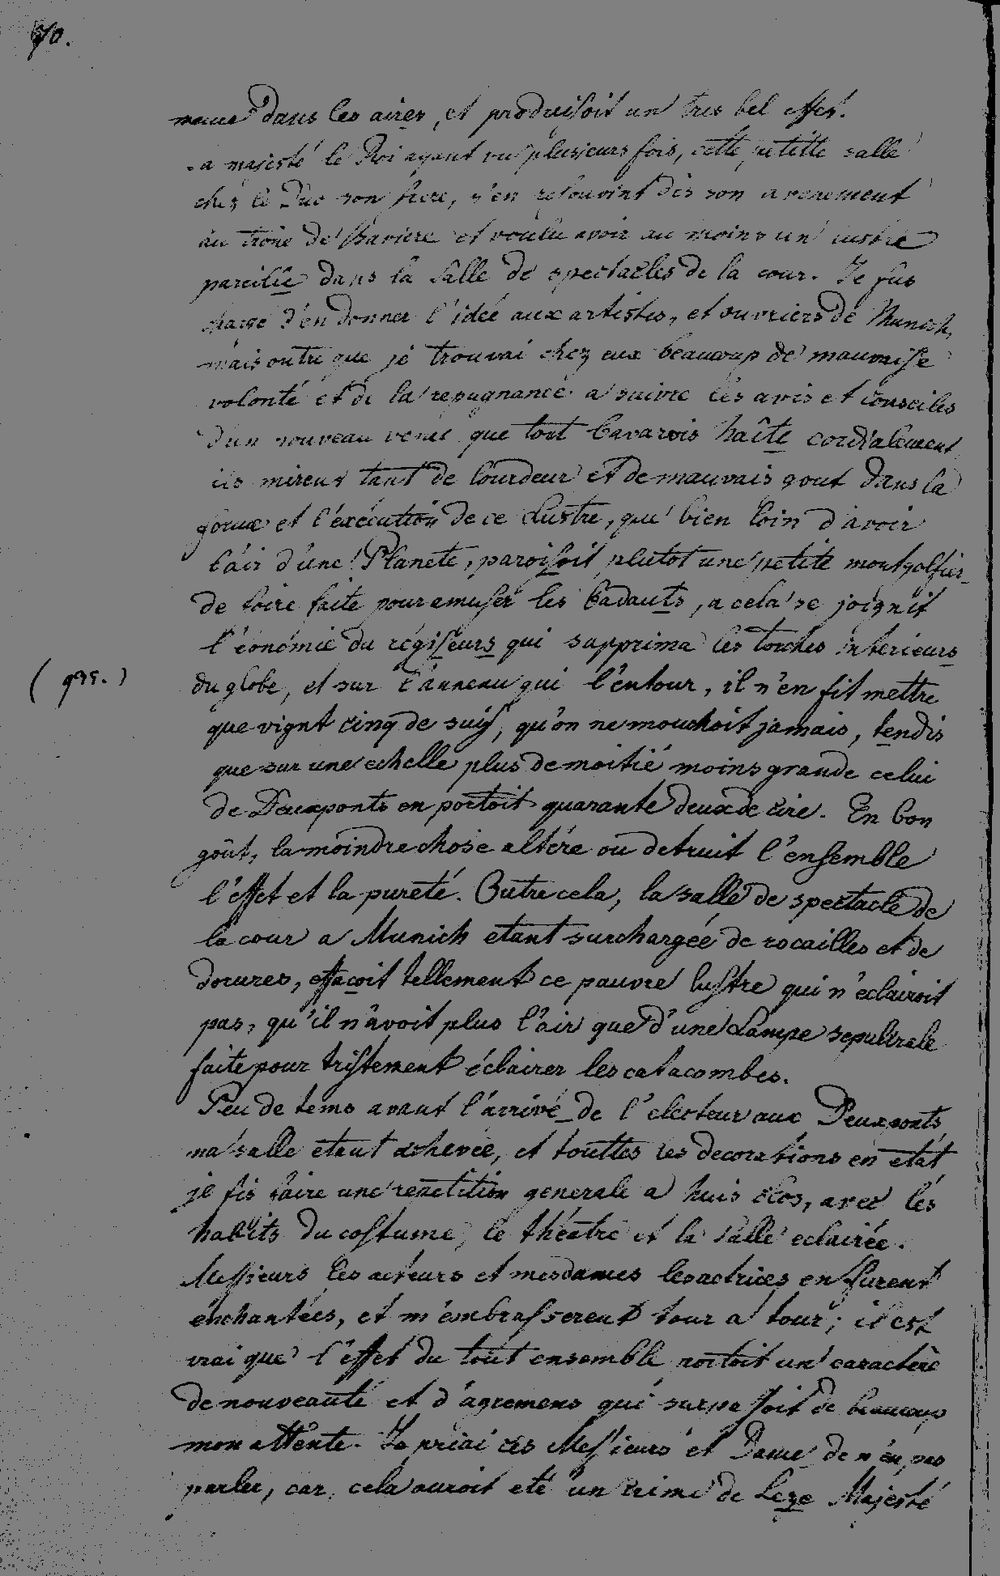 70.
dans les aires, et produisoit un tres bel effet.
a majesté le Roi ayant vu plusieurs fois, cette petitte salle
chez le Duc son frere, s'en resouvint dès son avenement
au trône de Baviere et voulu avoir au moins un lustre
pareille dans la salle de spectacles de la cour. Je fus
chargé d'en donner l'idée aux artistes, et ouvriers de Munich,
mais outre que je trouvai chez eux beaucoup de mauvaise
volonté et de la repugnance a suivre les avis et conseiles
d'un nouveau venu que tout bavarois haîte cordialement
ils mirent tant de lourdeur et de mauvais gout dans la
forme et l'exécution de ce lustre, que bien loin d'avoir
l'air d'une Planete, paroissoit plutot une petite montgolfier
de foire faite pour amuser les badauts, a cela se joignit
l'éconómie du régisseurs qui supprima les torches interieurs
( 995. )
du globe, et sur l'anneau qui l'entour, il n'en fit mettre
que vignt cinq de suif, qu'on ne mouchoit jamais, tendis
que sur une echelle plus de moitié moins grande celui
de Deuxponts en portoit quarante deux de cire. En bon
goût, la moindre chose altére ou detruit l'ensemble
l'effet et la pureté. Outre cela, la salle de spectacle de
la cour a Munich etant surchargée de rocailles et de
dorures, effaçoit tellement ce pauvre lustre qui n'eclairoit
pas, qu'il n'avoit plus l'air que d'une Lampe sepultrale
faite pour tristement éclairer les catacombes.
Peu de tems avant l'arrivé de l'electeur aux Deuxponts
ma salle etant achevée, et touttes les decorations en etat
je fis faire une repetition generale a huis clos, avec les
habits du costume, le théatre et la salle eclairée.
Messieurs les acteurs et mesdames les actrices en furent
enchantées, et m'embrasserent tour a tour; il est
vrai que l'effet du tout ensemble portoit un caractère
de nouveauté et d'agremens qui surpassoit de beaucoup
mon attente. Je priai ces Messieurs et Dame de n'en pas
parler, car cela auroit eté un crime de Leze Majesté